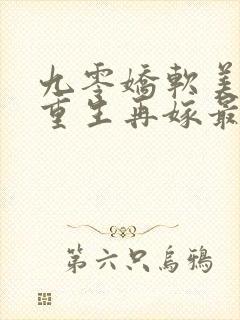 九零嬌軟美
重生再嫁最
第六只烏鴉